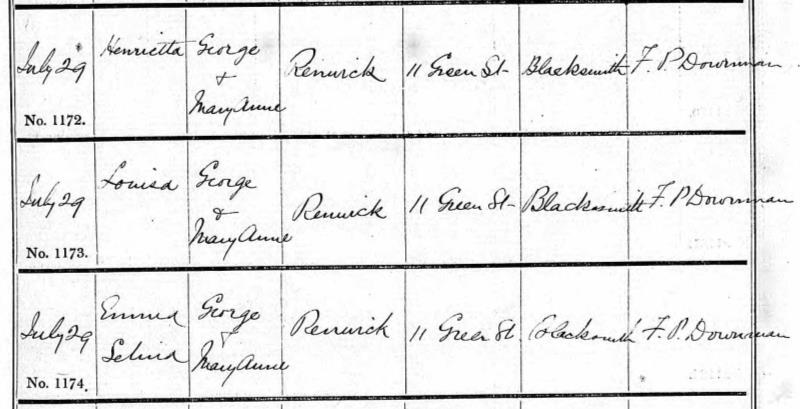 July 29 Henrietta George & Mary Anne Renwick 11 Green St. Blacksmith F. P. Downman
No. 1172.
July 29 Louisa George & Mary Anne Renwick 11 Green St. Blacksmith F. P. Downman
No. 1173.
July 29 Emma Selina George & Mary Anne Renwick 11 Green St. Blacksmith F. P. Downman
No. 1174.